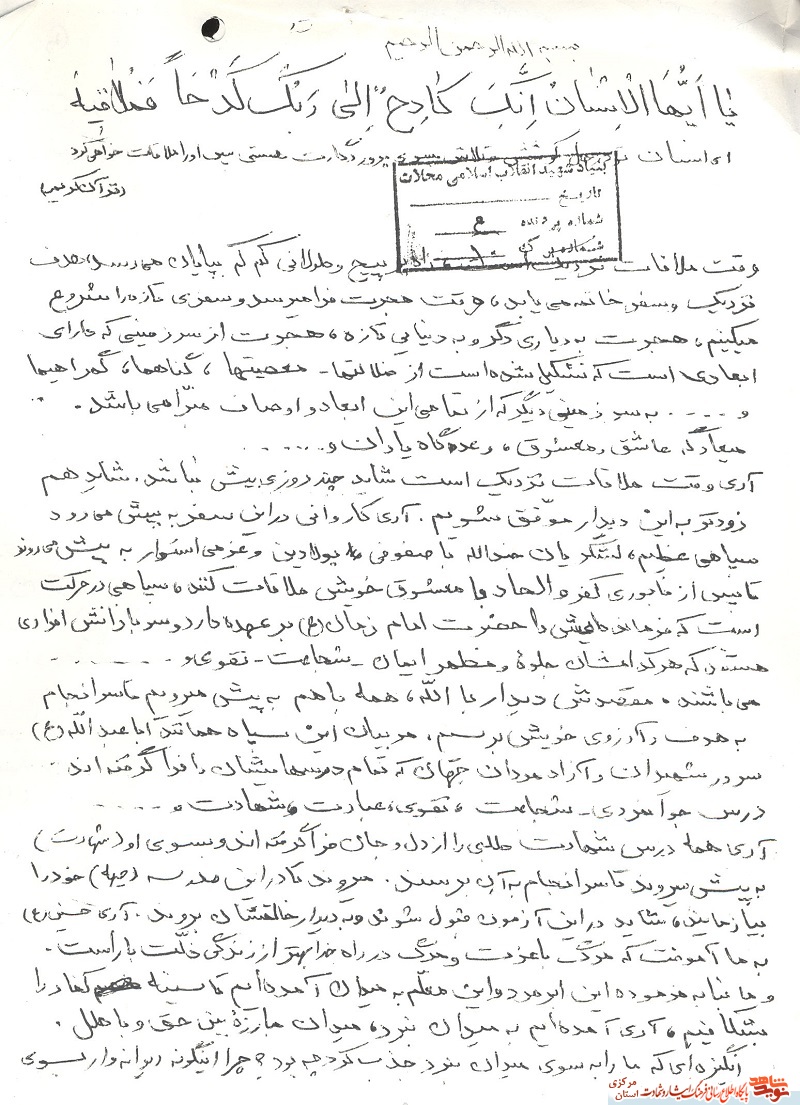 بسم الله الرحمن الرحیم
یا اَیُّهَا الْاِنْسٰانُ اِنَّکَ کٰادِحٌ اِلیٰ رَبِّکَ کَدْحَاً فَمُلاٰقیهِ
ای انسان تو با کوشش و تلاش بسوی پروردگارت هستی پس او را ملاقات خواهی کرد
(قرآن کریم)
بنیاد شهید انقلاب اسلامی محلات
تاریخ
شماره پرونده ع
شماره برگ ۱
وقت ملاقات نزدیک است سفر پر پیچ و طولانی کم کم بپایان می‌رسد، هدف
نزدیک و سفر خاتمه می یابد، وقت هجرت فرا میرسد و سفری تازه را شروع
میکنیم، هجرت به دیاری دگر و به دنیایی تازه، هجرت از سرزمینی که دارای
ابعادی است که تشکیل شده است از ضلالتها - معصیتها، گناهها، گمراهیها
و .... به سرزمینی دیگر که از تمامی این ابعاد و اوصاف مبرّا می باشد.
میعادگه عاشق و معشوق، وعده‌گاه یاران و .....
آری وقت ملاقات نزدیک است شاید چند روزی بیش نباشد. شاید هم
زودتر به این دیدار موفّق شویم. آری کاروانی در این سفر به پیش می رود
سپاهی عظیم، لشگریان جندالله با صفوفی پولادین و عزمی استوار به پیش می روند
تا پس از نابودی کفر و الحاد با معشوق خویش ملاقات کنند، سپاهی در حرکت
است که فرماندهیش را حضرت امام زمان (ع) بر عهده دارد و سربازانش افرادی
هستند که هر کدامشان جلوۀ و مظهر ایمان - شجاعت - تقوی و ......
می باشند، مقصدش دیدار با اللّه، همه باهم به پیش میرویم تا سرانجام
به هدف و آرزوی خویش برسیم، مربیان این سپاه همانند اباعبداللّه (ع)
سرور شهیدان و آزاد مردان جهان که تمام درسهایشان را فرا گرفته اند
درس جوانمردی - شجاعت، تقوی، عبادت و شهادت و .....
آری همه درس شهادت طلبی را از دل و جان فرا گرفته اند و بسوی او (شهادت)
به پیش میروند تا سرانجام به آن برسند. میروند تا در این مدرسه (جبهه) خود را
بیازمایند، شاید در این آزمون قبول شوند و به دیدار خالقشان بروند. آری حسین (ع)
به ما آموخت که مرگ باعزت و مرگ در راه خدا بهتر از زندگی ذلّت بار است.
و ما بنا به فرموده این ابرمرد و این معلّم به میدان آمده‌ایم تا سینه کفار را
بشکافیم، آری آمده‌ایم به میدان نبرد، میدان مبارزۀ بین حق و باطل.
انگیزه‌ای که ما را به سوی میدان نبرد جذب کرد چه بود؟ چرا اینگونه دیوانه وار بسوی
نوید شاهد
پایگاه اطلاع رسانی فرهنگ ایثار و شهادت استان مرکزی